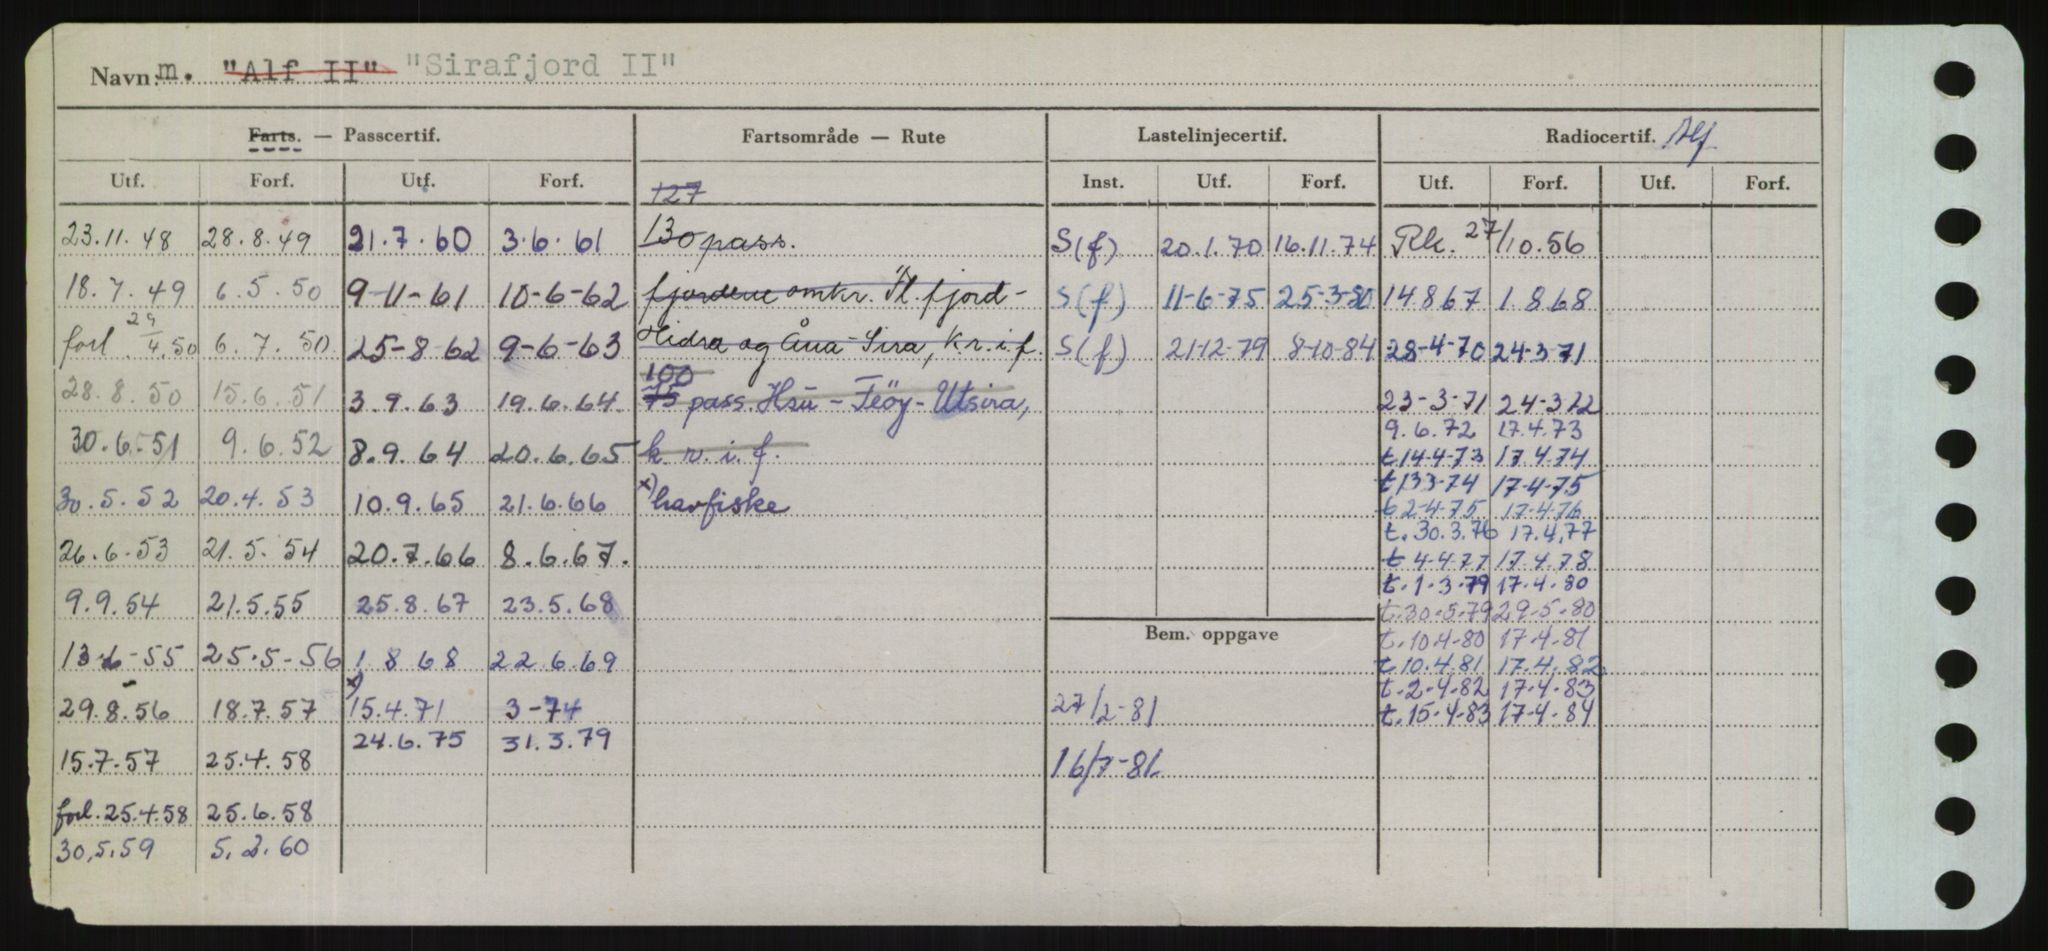 Navn: m. "Alf II" "Sirafjord II"
Farts. — Passcertif. Fartsområde — Rute Lastelinjecertif. Radiocertif. Alf
Utf. Forf. Utf. Forf. Inst. Utf. Forf. Utf. Forf. Utf. Forf.
127
23.11.48 28.8.49 21.7.60 3.6.61 130 pass. S(f) 20.1.70 16.11.74 Rk. 27/10.56
18.7.49 6.5.50 9-11-61 10-6-62 fjordene omkr. Fl.fjord- S(f) 11-6-75 25-3-80 14.8.67 1.8.68
forl. 29/4.50 6.7.50 25-8-62 9-6-63 Hidra og Åna-Sira, k.r.i.f. S(f) 21-12-79 8-10-84 28-4-70 24-3-71
100
28.8.50 15.6.51 3.9.63 19.6.64 75 pass. Hsu - Feöy - Utsira, 23-3-71 24-3-72
9.6.72 17.4.73
30.6.51 9.6.52 8.9.64 20.6.65 k.r.i.f. t 14-4-73 17.4.74
t 13.3-74 17-4-75
30.5.52 20.4.53 10.9.65 21.6.66 x) havfiske t 2-4-75 17.4.76
t. 30.3.76 17.4.77
26.6.53 21.5.54 20.7.66 8.6.67. t 4-4-77 17.4.78
t. 1-3-79 17.4.80
9.9.54 21.5.55 25.8.67 23.5.68 t. 30.5.79 29.5.80
Bem. oppgave t. 10.4-80 17.4-81
13-6-55 25.5-56 1.8.68 22.6.69 t. 10.4.81 17.4.82
t. 2-4.82 17.4.83
29.8.56 18.7.57 x) 15.4.71 3-74 27/2-81 t. 15-4-83 17-4-84
24.6.75 31.3.79
15.7.57 25.4.58 16/7-81
forl. 25.4.58 25.6.58
30.5.59 5.2.60